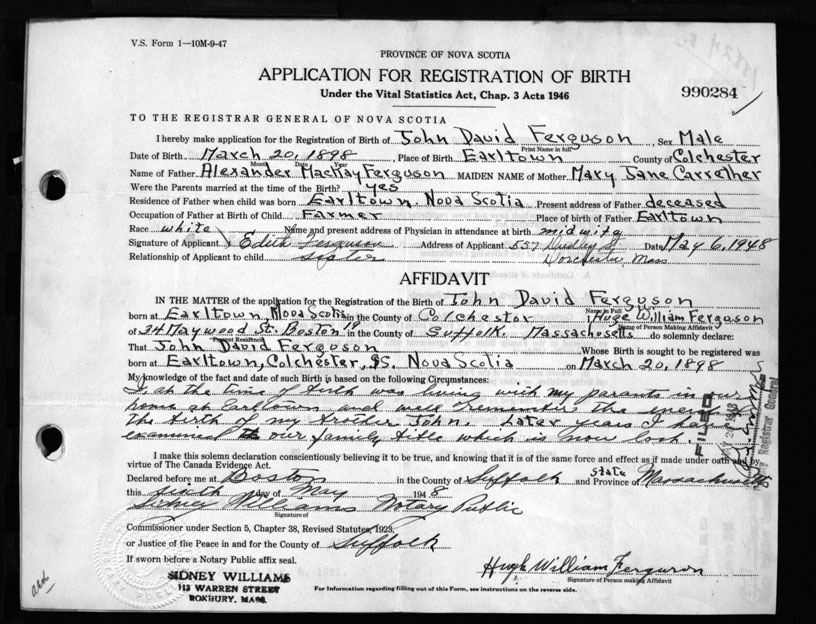 V.S. Form 1—10M-9-47
PROVINCE OF NOVA SCOTIA
APPLICATION FOR REGISTRATION OF BIRTH
Under the Vital Statistics Act, Chap. 3 Acts 1946
990284
TO THE REGISTRAR GENERAL OF NOVA SCOTIA
I hereby make application for the Registration of Birth of John David Ferguson, Sex Male
Print Name in full
Date of Birth March 20, 1898, Place of Birth Earltown County of Colchester
Month Date Year
Name of Father Alexander MacKay Ferguson MAIDEN NAME of Mother Mary Jane Carrether
Were the Parents married at the time of the Birth? yes
Residence of Father when child was born Earltown. Nova Scotia Present address of Father deceased
Occupation of Father at Birth of Child Farmer Place of birth of Father Earltown
Race white Name and present address of Physician in attendance at birth midwife
Signature of Applicant Edith Ferguson Address of Applicant 557 Dudley St Date May 6, 1948
Relationship of Applicant to child sister Dorchester, Mass
AFFIDAVIT
IN THE MATTER of the application for the Registration of the Birth of John David Ferguson
Name in Full
born at Earltown, Nova Scotia in the County of Colchestor I, Huge William Ferguson
Name of Person Making Affidavit
of 34 Maywood St. Boston 19 in the County of Suffolk. Massachosetts do solemnly declare:
Present Residence
That John David Ferguson Whose Birth is sought to be registered was
born at Earltown, Colchester, Nova Scotia on March 20, 1898
My knowledge of the fact and date of such Birth is based on the following Circumstances:
I, at the time of birth was living with my parents in our
home at Earltown and well remember the
the birth of my brother John. Later years I have
examined our family bible which is now lost.
FILED
Registrar General
I make this solemn declaration conscientiously believing it to be true, and knowing that it is of the same force and effect as if made under oath and by
virtue of The Canada Evidence Act.
Declared before me at Boston in the County of Suffolk state and Province of Massachusetts
this sixth day of May 1948
Sidney Williams Notary Public
Signature of
Commissioner under Section 5, Chapter 38, Revised Statutes, 1923.
or Justice of the Peace in and for the County of Suffolk
If sworn before a Notary Public affix seal.
Hugh William Ferguson
Signature of Person making Affidavit
SIDNEY WILLIAMS
113 WARREN STREET
ROXBURY, MASS.
For Information regarding filling out of this Form, see instructions on the reverse side.